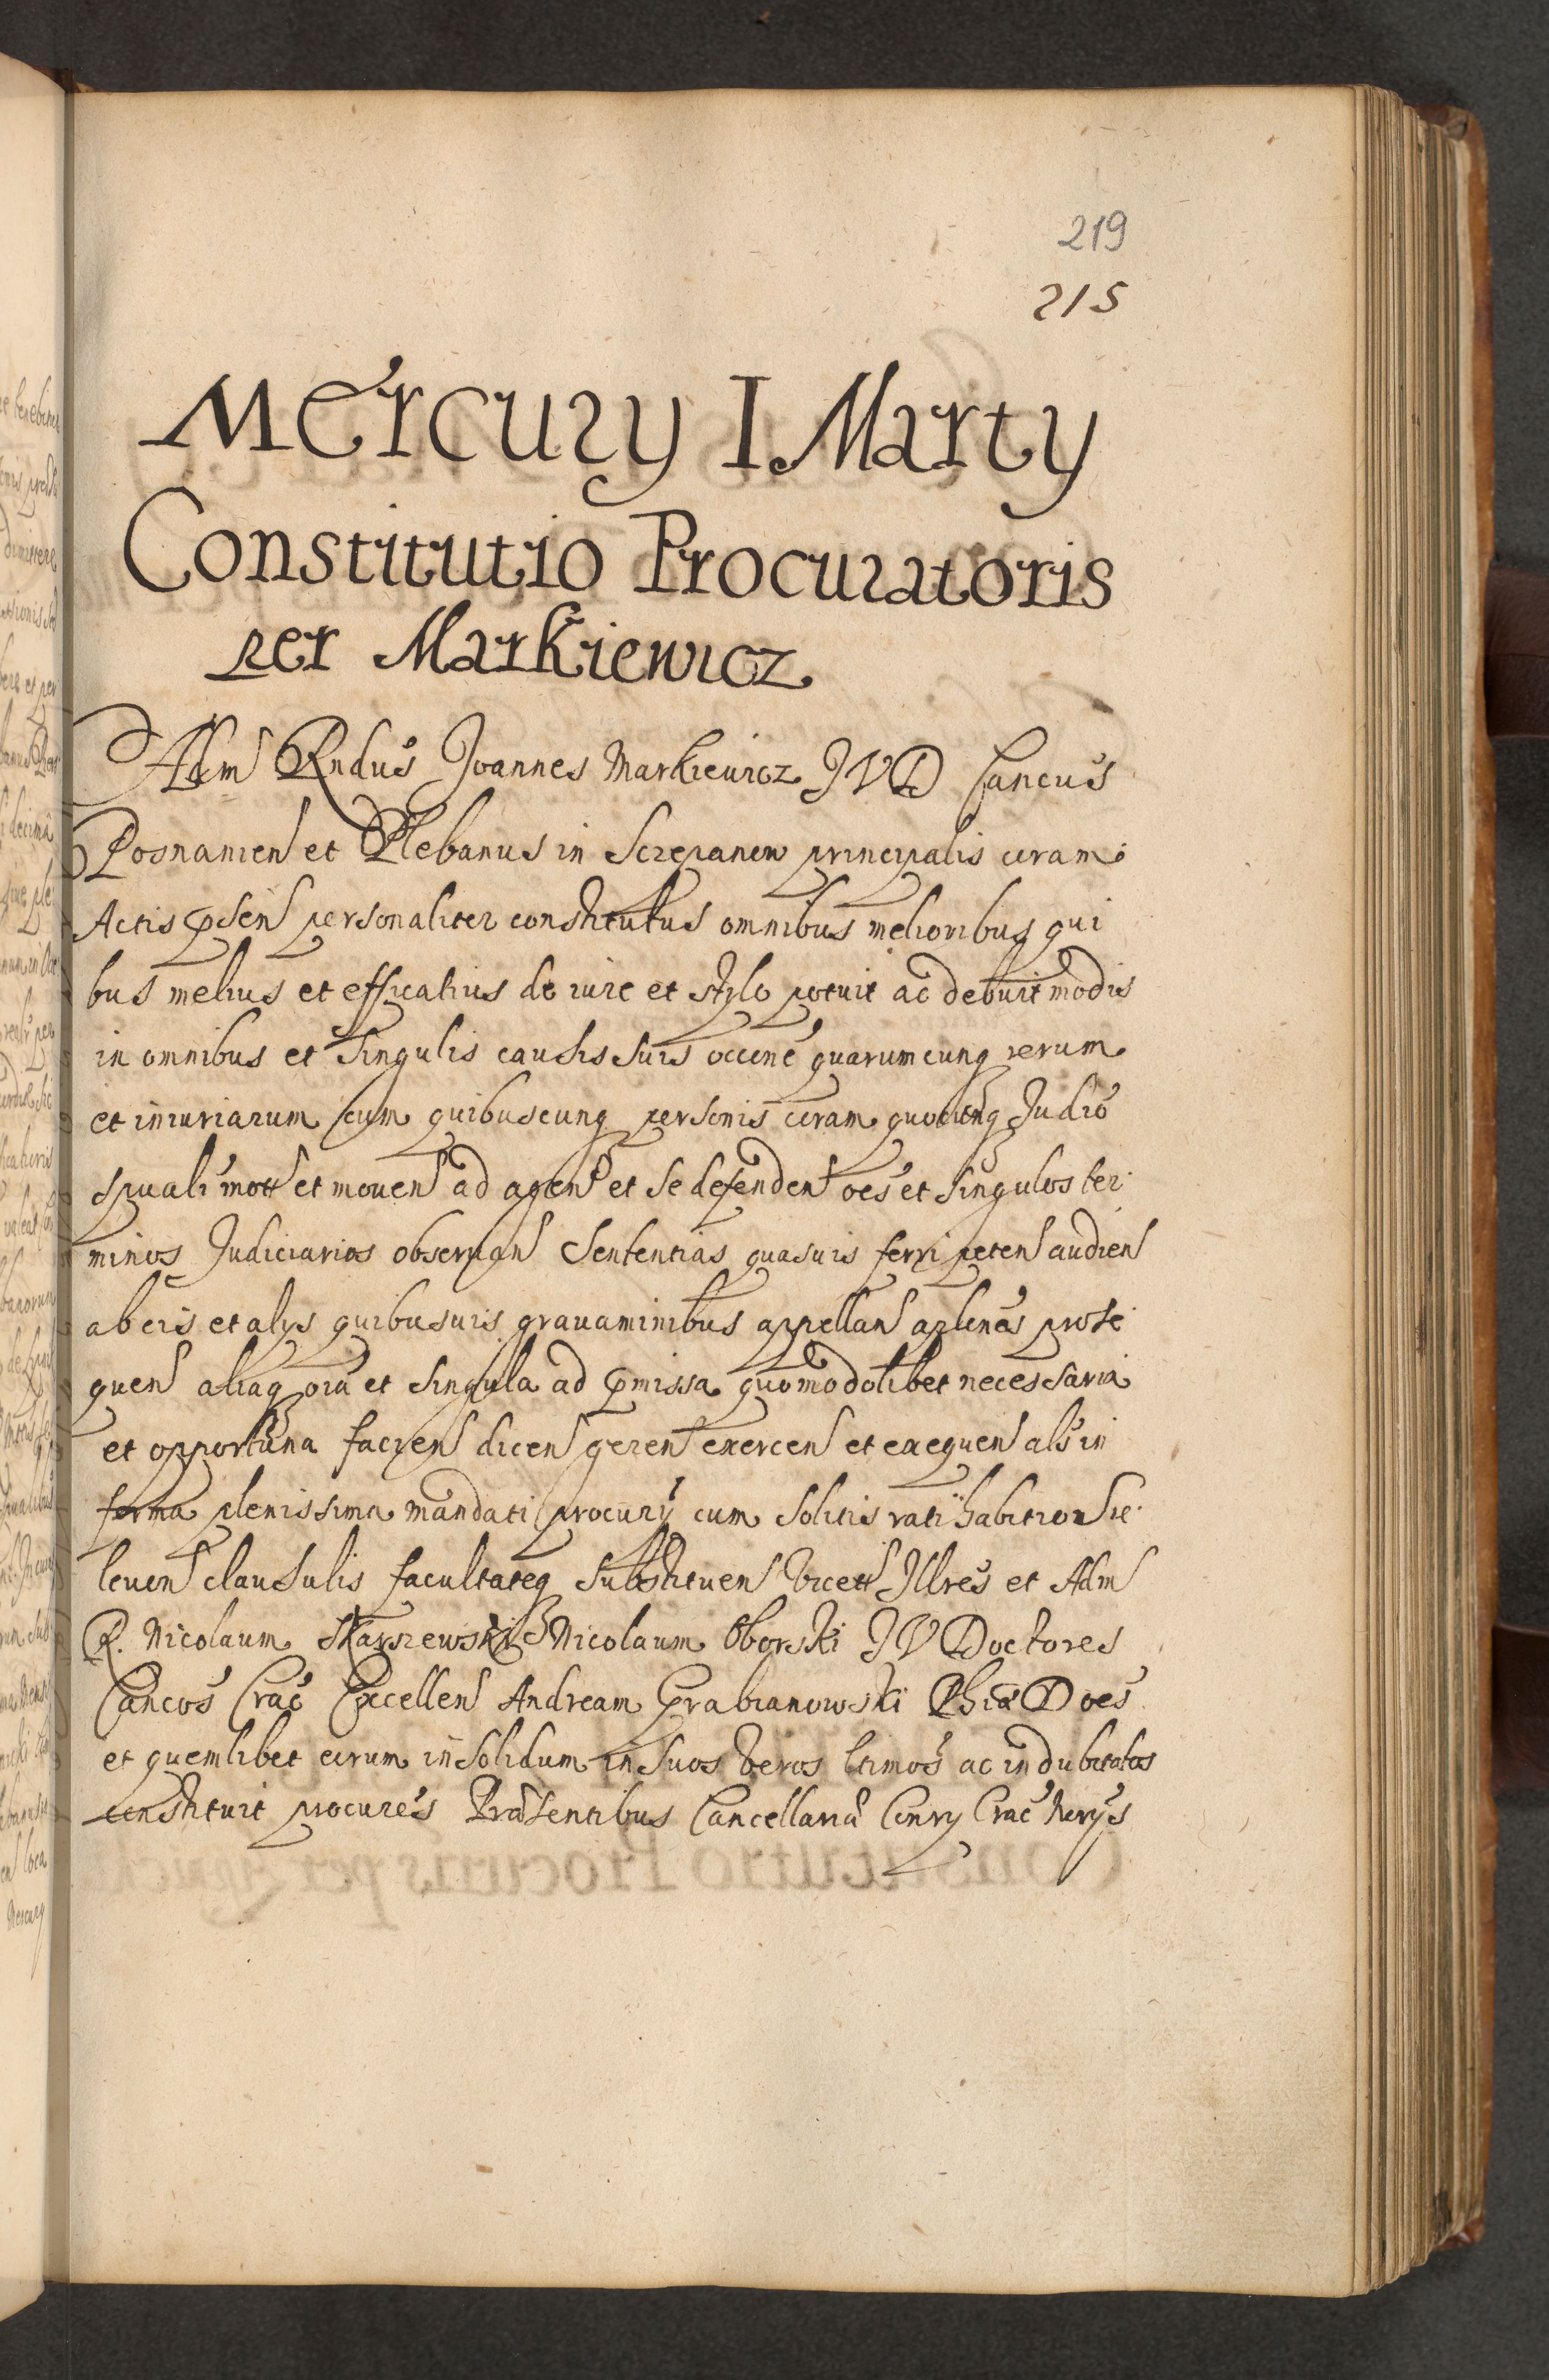 219
215
Mercury I Marty
Constitutio Procuratoris
per Markiewicz
Adm Rndus Joannes Markiewicz JVD Cancus
Posnanien et Plebanus in Sczepanow principalis coram
Actis psen personaliter constitutus omnibus melioribus qui
bus melius et efficatius de iure et stylo potuit ac debuit modis
in omnibus et singulis causis suis occone quarumcunq rerum
et iniuriarum cum quibuscunq personis coram quocunq Judio
spuali mott et mouen ad agen et se defenden oes et singulos ter
minos Judiciarios obseruan Sententias quasuis ferri peten audien
ab eis et alys quibusuis grauaminibus appellan aplones prose
quen aliaq oia et singula ad pmissa quomodolibet necessaria
et opportuna facien dicen geren exercen et exequen als in
forma plenissima mandati procury cum solitis ratihabition re
leuon clausulis facultateq substituen vicett Jllres et Adm
R. Nicolaum Skarszewski Nicolaum Oborski JV Doctores
Cancos Crac Excellen Andream Grabianowski Phiae Does
et quemlibet eorum in solidum in suos veros ltimos ac indubitatos
constituit procures Praesentibus Cancellaria Conry Crac Norys